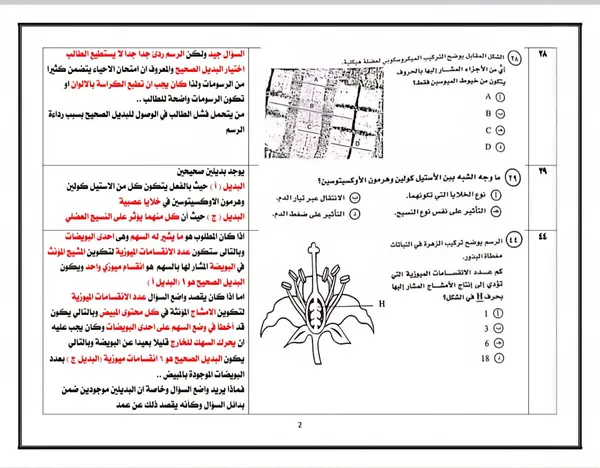 ٢٨
(٢٨) الشكل المقابل يوضح التركيب الميكروسكوبي لعضلة هيكلية.
أيّ من الأجزاء المشار إليها بالحروف
يتكون من خيوط الميوسين فقط؟
أ A
ب B
ج C
د D
A
B
C
D
السؤال جيد ولكن الرسم ردئ جدا جدا لا يستطيع الطالب
اختيار البديل الصحيح والمعروف ان امتحان الاحياء يتضمن كثيرا
من الرسومات ولذا كان يجب ان تطبع الكراسة بالالوان او
تكون الرسومات واضحة للطالب ..
من يتحمل فشل الطالب في الوصول للبديل الصحيح بسبب رداءة
الرسم
٢٩
(٢٩) ما وجه الشبه بين الأستيل كولين وهرمون الأوكسيتوسين؟
أ نوع الخلايا التي تكونهما.
ب الانتقال عبر تيار الدم.
ج التأثير على نفس نوع النسيج.
د التأثير على ضغط الدم.
يوجد بديلين صحيحين
البديل ( أ ) حيث بالفعل يتكون كل من الاستيل كولين
وهرمون الاوكسيتوسين في خلايا عصبية
البديل ( ج ) حيث أن كل منهما يؤثر على النسيج العضلي
٤٤
(٤٤) الرسم يوضح تركيب الزهرة في النباتات
مغطاة البذور.
كم عدد الانقسامات الميوزية التي
تؤدي إلى إنتاج الأمشاج المشار إليها
بحرف H في الشكل؟
أ 1
ب 3
ج 6
د 18
H
اذا كان المطلوب هو ما يشير له السهم وهى احدى البويضات
وبالتالى ستكون عدد الانقسامات الميوزية لتكوين المشيج المؤنث
في البويضة المشار لها بالسهم هو انقسام ميوزي واحد ويكون
البديل الصحيح هو ١ (البديل أ )
اما اذا كان يقصد واضع السؤال عدد الانقسامات الميوزية
لتكوين الامشاج المؤنثة في كل محتوى المبيض وبالتالي يكون
قد أخطا في وضع السهم على احدى البويضات وكان يجب عليه
ان يحرك السهك للخارج قليلا بعيدا عن البويضة وبالتالي
يكون البديل الصحيح هو ٦ انقسامات ميوزية (البديل ج ) بعدد
البويضات الموجودة بالمبيض ..
فماذا يريد واضع السؤال وخاصة ان البديلين موجودين ضمن
بدائل السؤال وكأنه يقصد ذلك عن عمد
2